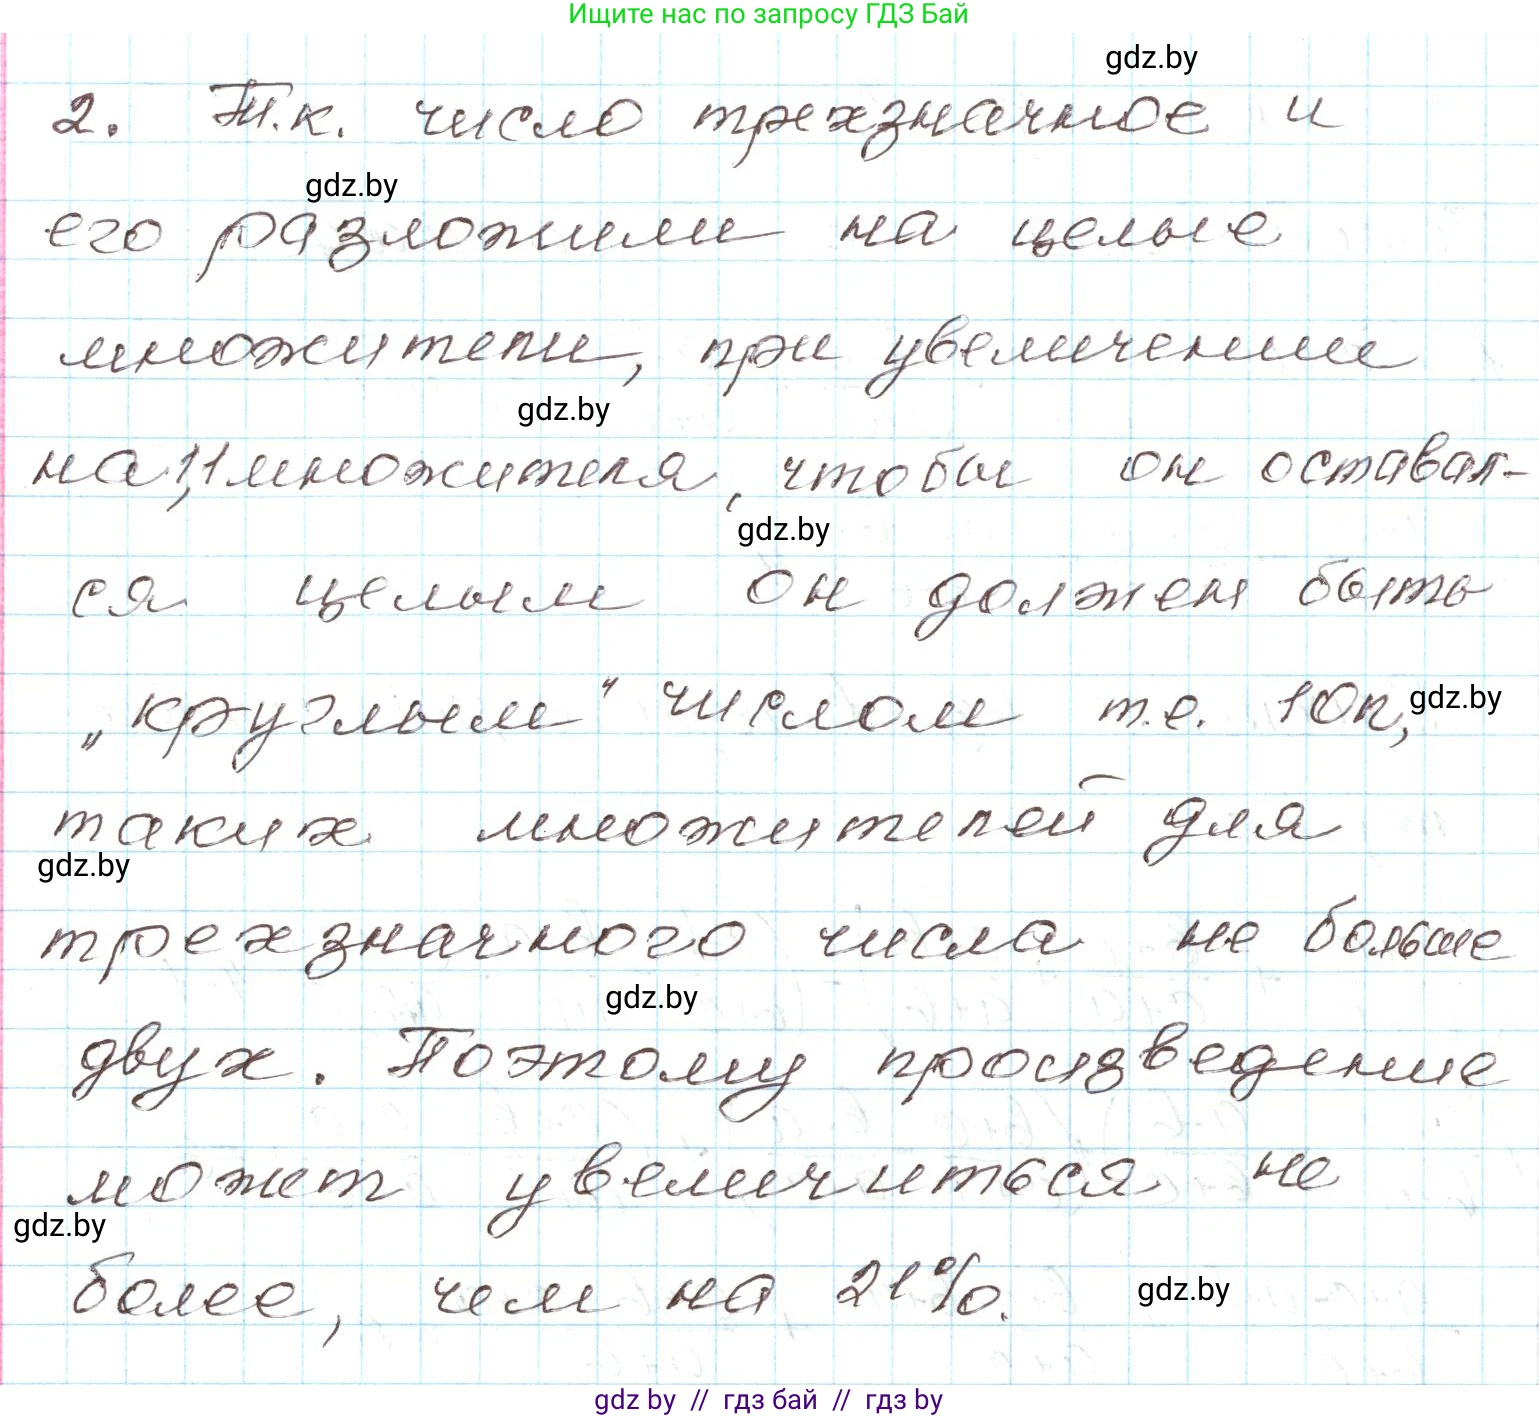 Ищите нас по запросу ГДЗ Бай
gdz.by
2. Т.к. число трехзначное и
gdz.by
его разложили на целые
множители, при увеличении
gdz.by
на 1,1 множителя, чтобы он оставал-
gdz.by
ся целым он должен быть
„круглым" числом т.е. 10n,
gdz.by
таких множителей для
gdz.by
трехзначного числа не больше
gdz.by
двух. Поэтому произведение
может увеличиться не
gdz.by
более, чем на 21%.
gdz.by
gdz by // гдз бай // гдз by